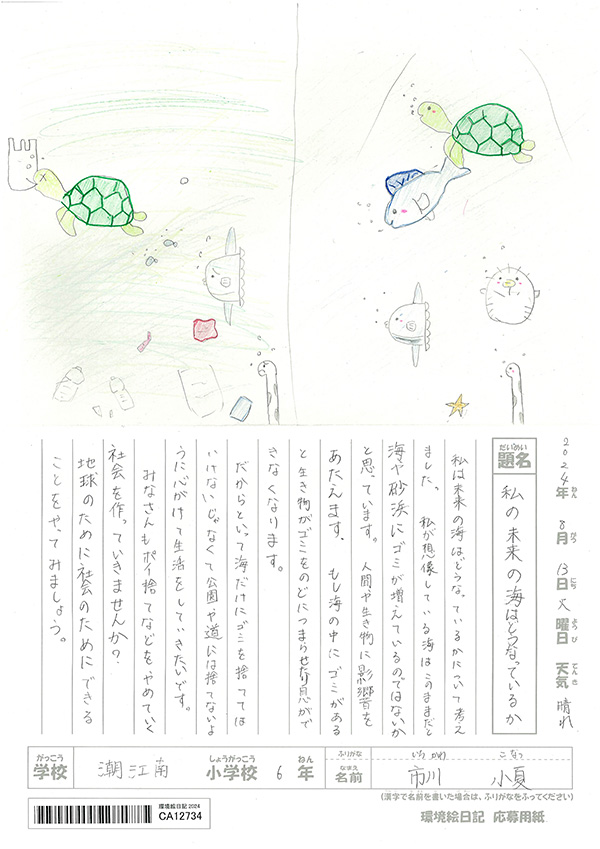 2024年 8月 13日 火曜日 天気 晴れ
ねん がつ にち ようび てんき
だいめい
題名 私の未来の海はどうなっているか
私は未来の海はどうなっているかについて考え
ました。 私が想像している海はこのままだと
海や砂浜にゴミが増えているのではないか
と思っています。 人間や生き物に影響を
あたえます。 もし海の中にゴミがある
と生き物がゴミをのどにつまらせたり息がで
きなくなります。
だからといって海だけにゴミを捨てては
いけないじゃなくて公園や道には捨てないよ
うに心がけて生活をしていきたいです。
みなさんもポイ捨てなどをやめていく
社会を作っていきませんか？
地球のために社会のためにできる
ことをやってみましょう。
がっこう しょうがっこう ねん ふりがな いちかわ こなつ
学校 潮江南 小学校 6年 なまえ 名前 市川 小夏
(漢字で名前を書いた場合は、ふりがなをふってください)
環境絵日記 2024
CA12734
環境絵日記 応募用紙